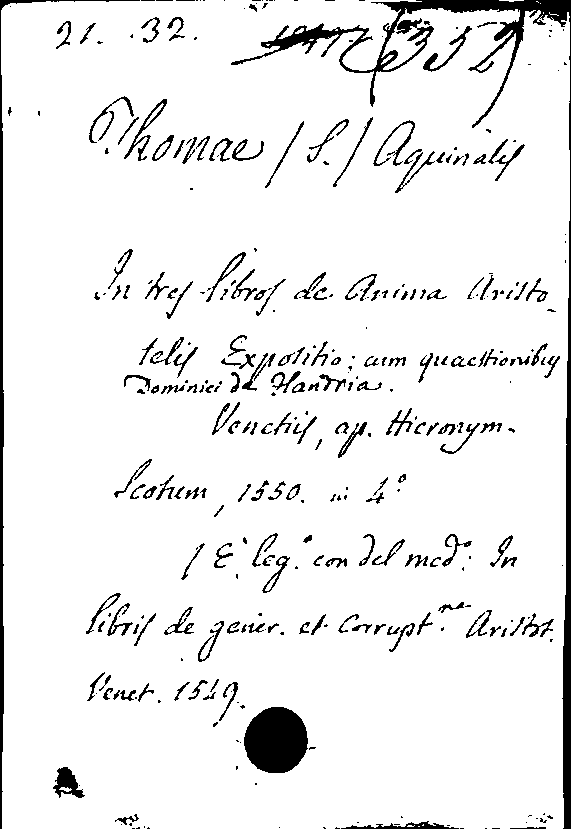 21. .32. (352)
Thomae /S./ Aquinatis
In tres libros de Anima Aristo-
telis Expositio; cum quaestionibus
Dominici de Flandria.
Venetiis, ap. Hieronym.
Scotum, 1550. in 4°
/ E' leg.° con del med°: In
libris de gener. et Corrupt.ne Aristot.
Venet. 1549.